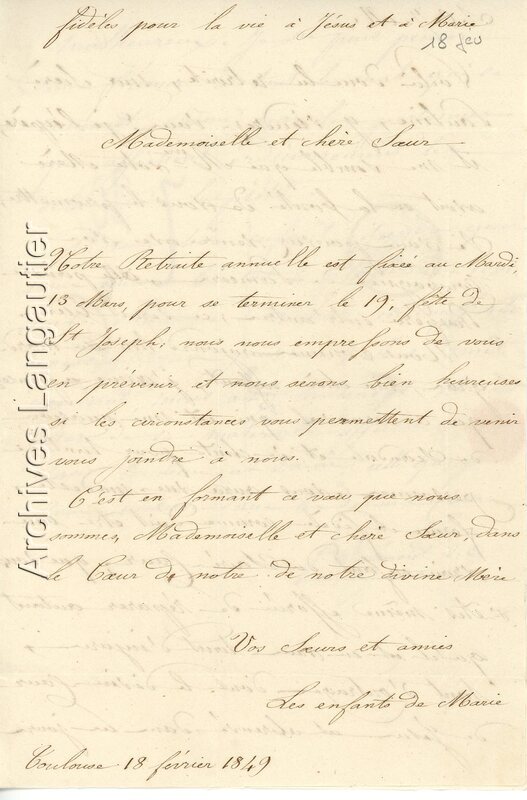 fidèles pour la vie à Jésus et à Marie
18 fev
Mademoiselle et chère Sœur
Notre Retraite annuelle est fixée au Mardi
13 Mars, pour se terminer le 19, fête de
St Joseph; nous nous empressons de vous
en prévenir, et nous serons bien heureuses
si les circonstances vous permettent de venir
vous joindre à nous.
C'est en formant ce vœu que nous
sommes, Mademoiselle et chère Sœur, dans
le Cœur de notre de notre divine Mère
Vos Sœurs et amies
Les enfants de Marie
Toulouse 18 février 1849
Archives Langautier